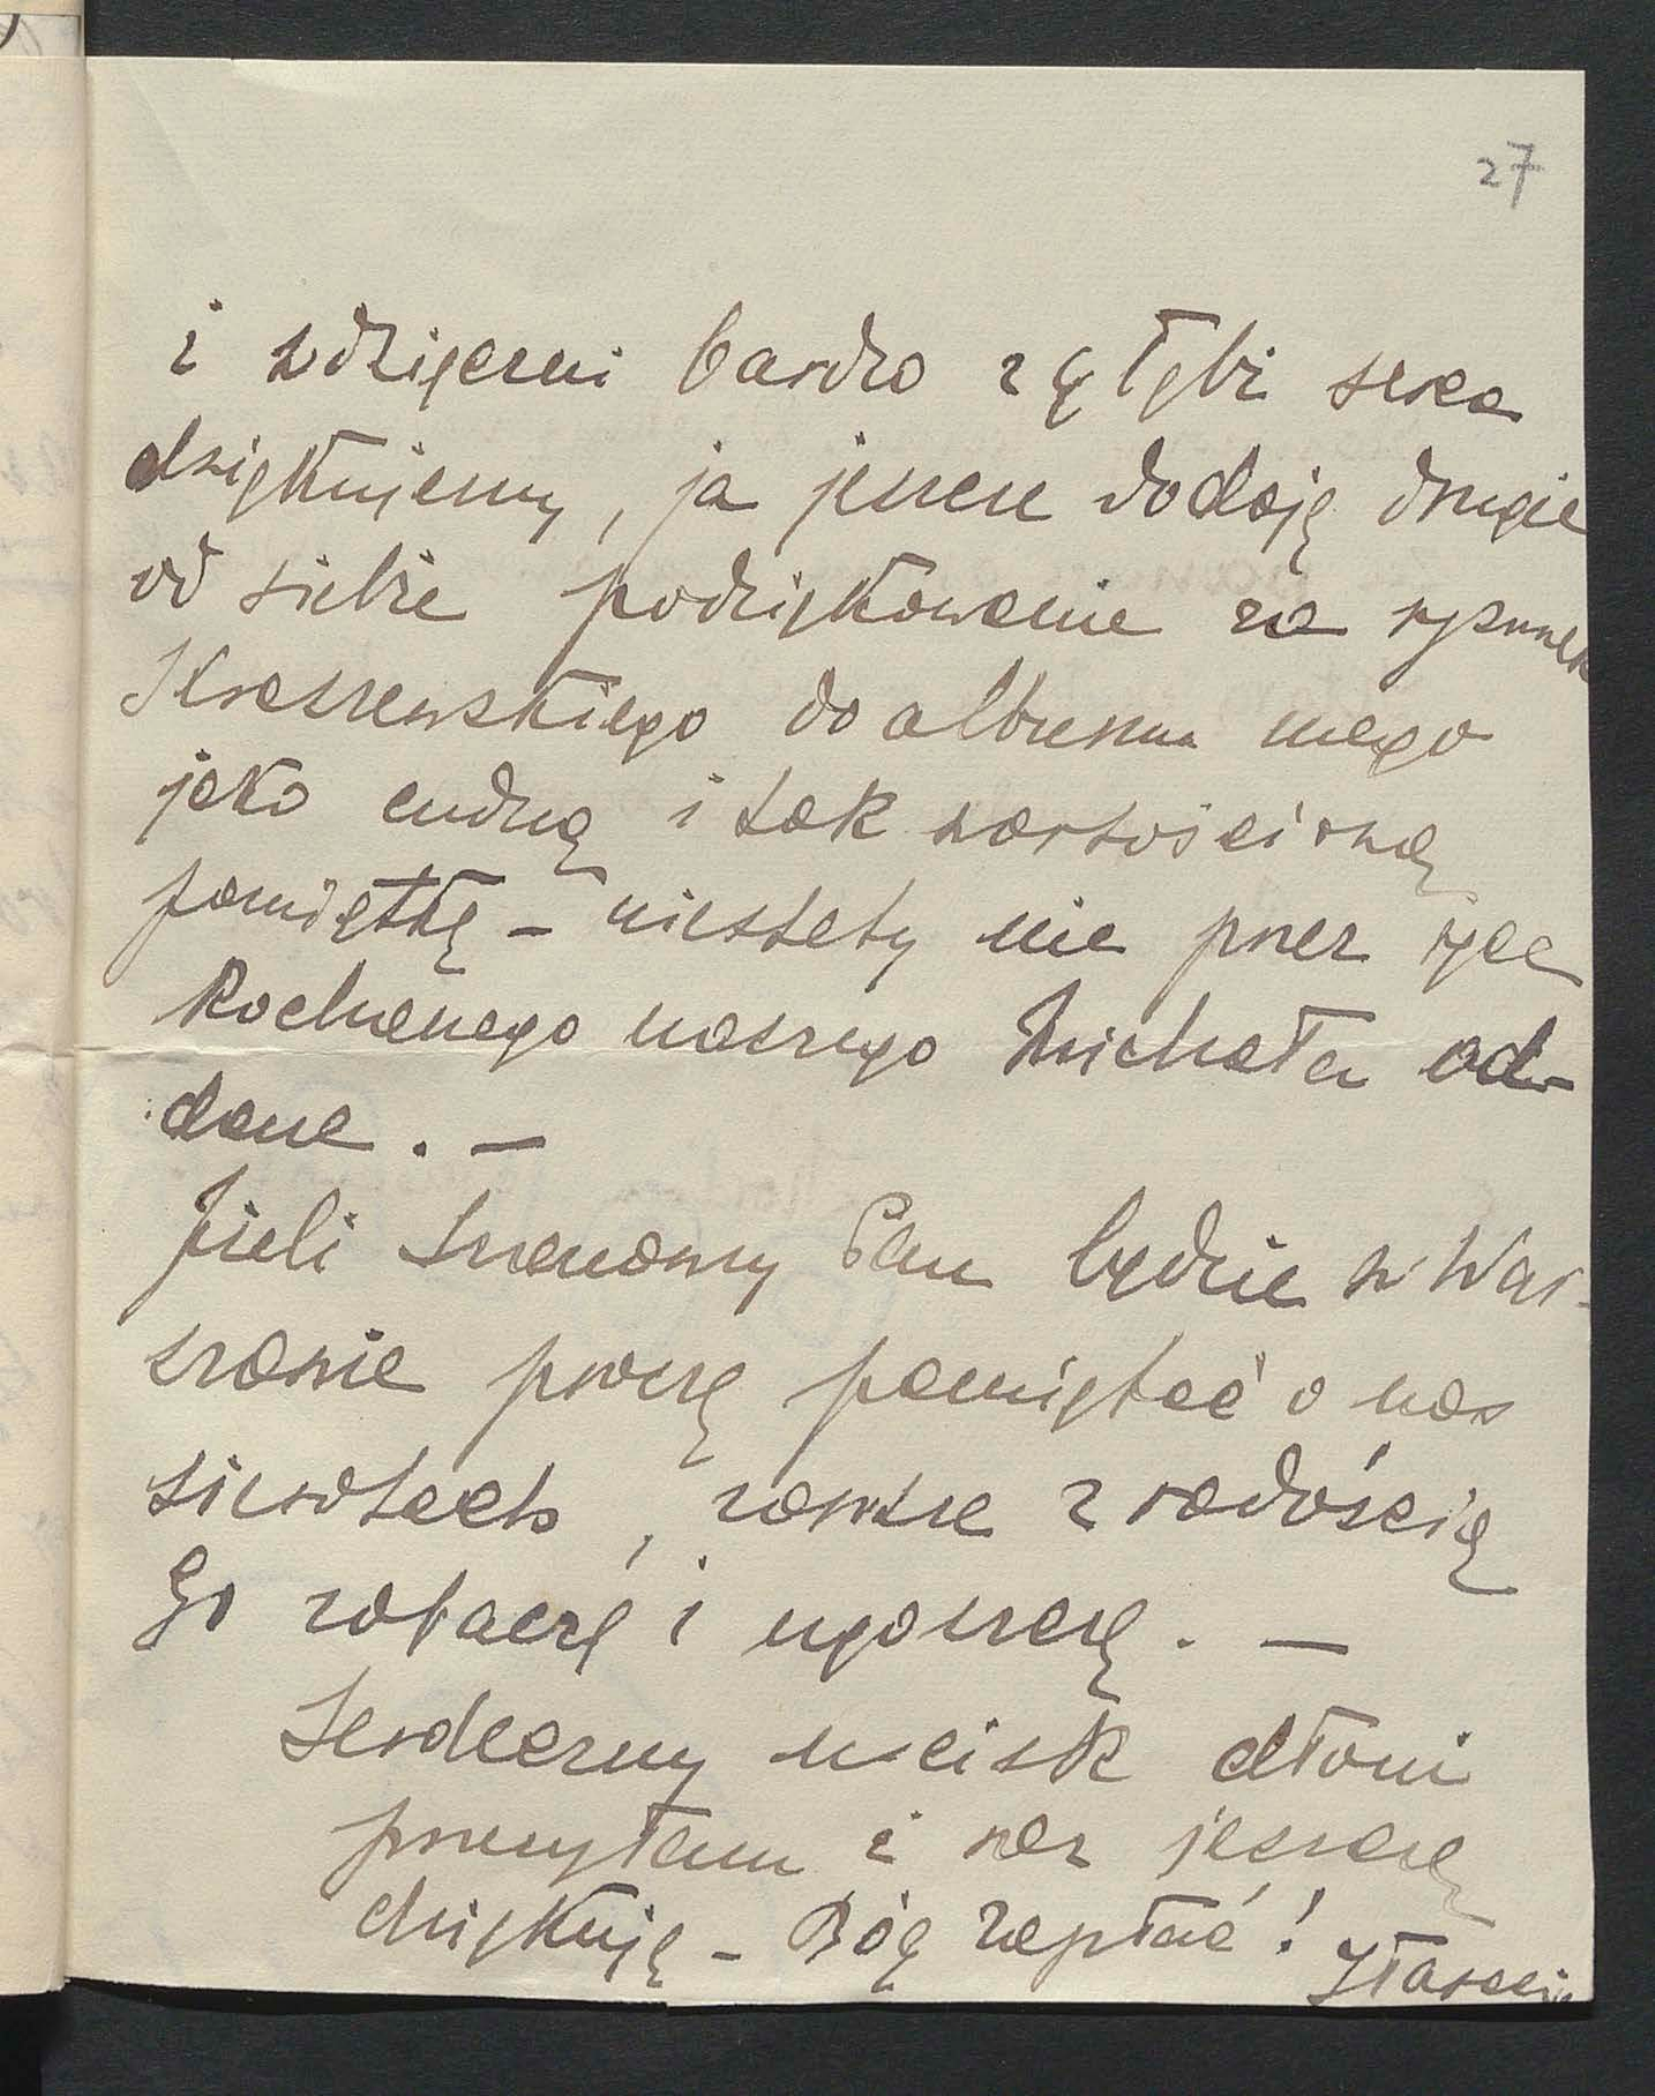 27
i wdzięczni bardzo z głębi serca
dziękujemy, ja jeszcze dodaję drugie
od siebie podziękowanie za rysunek
Kraszewskiego do albumu mego
jako cudną i tak wartościową
pamiątkę – niestety nie przez ręce
kochanego naszego Michała od-
dane. –
Jeżeli Szanowny Pan będzie w War-
szawie proszę pamiętać o nas
sierotach, zawsze z radością
Go zobaczę i ugoszczę. –
Serdeczny uścisk dłoni
przesyłam i raz jeszcze
dziękuję – Bóg zapłać!